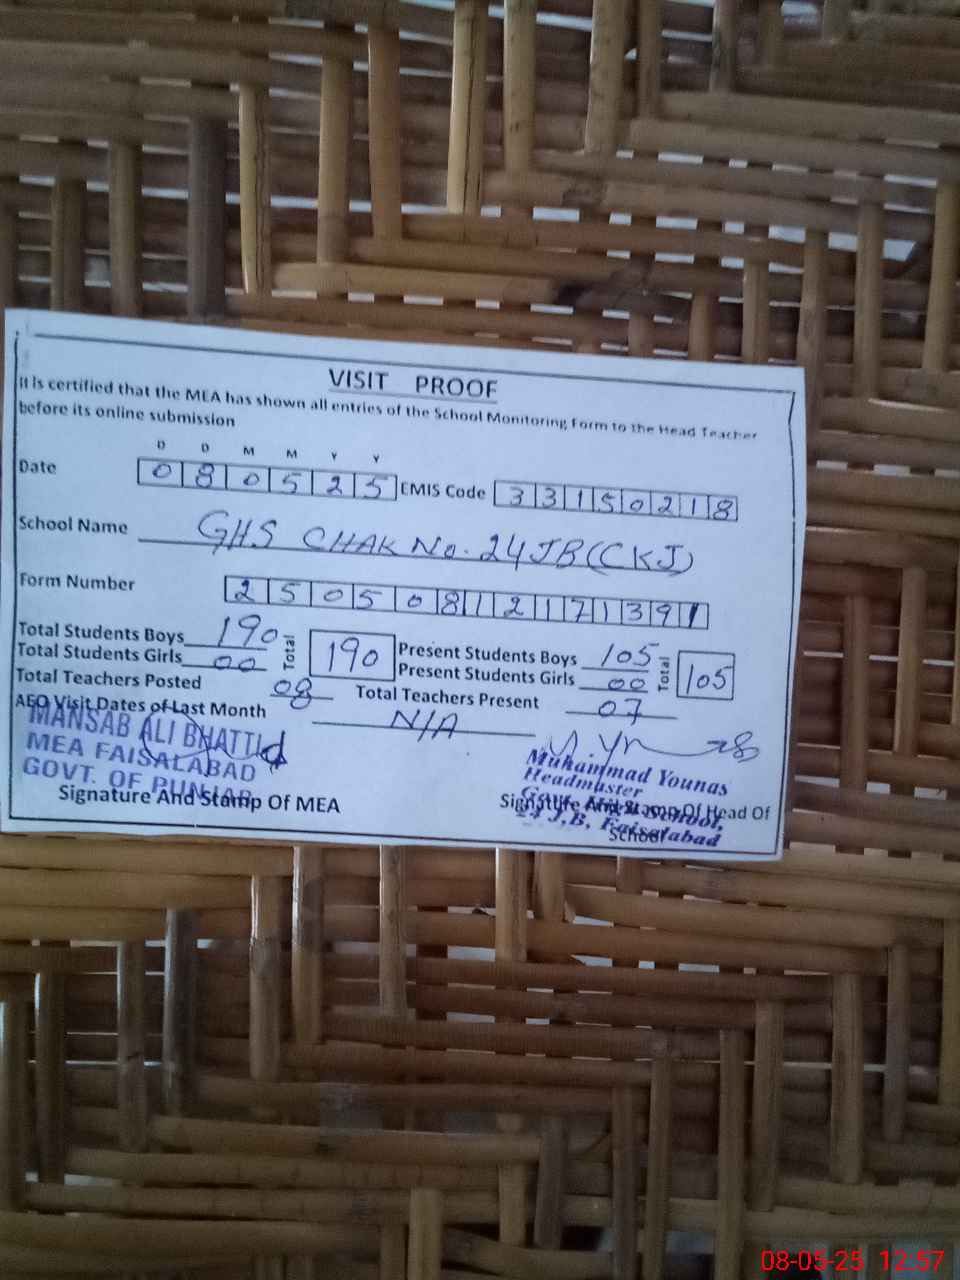 VISIT PROOF
It is certified that the MEA has shown all entries of the School Monitoring Form to the Head Teacher
before its online submission
D D M M Y Y
Date 0 8 0 5 2 5 EMIS Code 3 3 1 5 0 2 1 8
School Name GHS CHAK No. 24JB(CKJ)
Form Number 2 5 0 5 0 8 1 2 1 7 1 3 9 1
Total Students Boys 190 Total 190 Present Students Boys 105 Total 105
Total Students Girls 00 Present Students Girls 00
Total Teachers Posted 08 Total Teachers Present 07
AEO Visit Dates of Last Month N/A
MANSAB ALI BHATTI
MEA FAISALABAD
GOVT. OF PUNJAB
Signature And Stamp Of MEA
Muhammad Younas
Headmaster
Govt. High School,
24 J,B, Faisalabad
Signature And Stamp Of Head Of
School
08-05-25 12:57